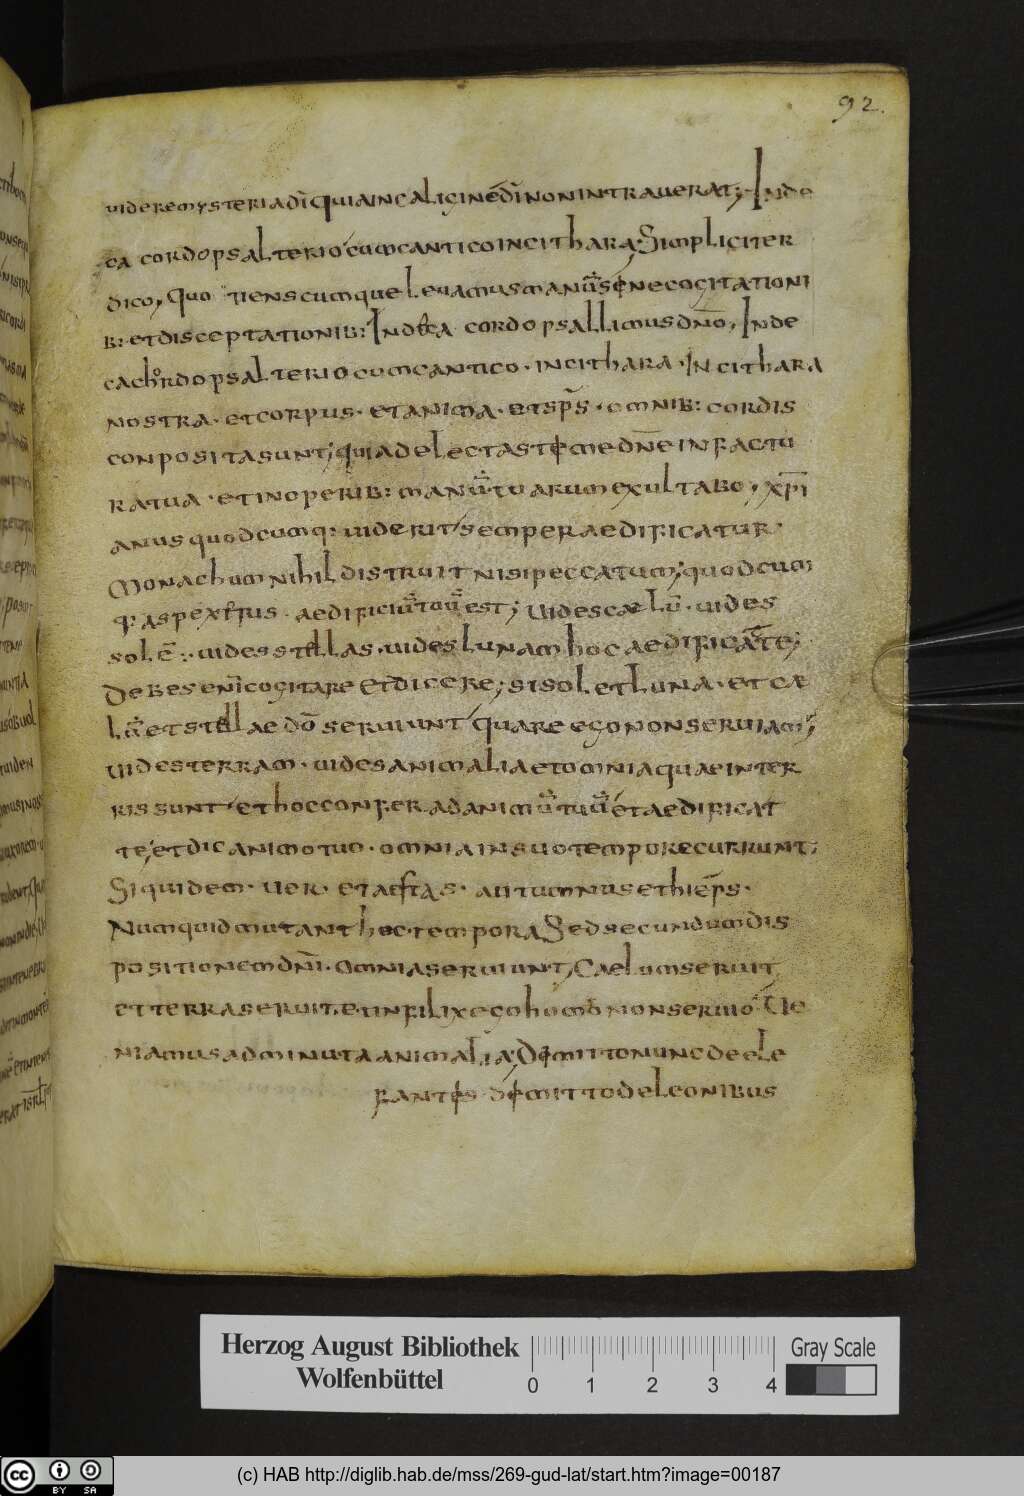 92.
uideremysteria dī quia in caliginē dī non intrauerat; Inde
ca cordo psalterio cum cantico in cithara; Simpliciter
dico, quotienscumque leuamus manūs sine cogitationi
b: et disceptationib: In deca cordo psallimus dn̄o, Inde
cachordo psalterio cum cantico · in cithara · In cithara
nostra · et corpus · et anima · et sp̄s · omnib: cordis
conposita sunt; quia delectasti me dn̄e in factu
ra tua · et in operib: manūu tuarum exultabo, xp̄i
anus quodcumq: uiderit semper aedificatur ·
Monachum nihil distruit nisi peccatum; quodcum
q: aspexerius · aedificiū tuū est; Uides caelū · uides
solē · uides stellas · uides lunam hoc aedificat te;
Debes enī cogitare et dicere; si sol et luna · et cae
lū et stellae dō seruiunt quare ego non seruiam;
Uides terram · uides animalia et omnia quae in ter
ris sunt et hoc confer ad animū tuū et aedificat
te, et dic animo tuo · omnia in suo tempore currunt;
Siquidem · uer · et aestas · autumnus et hiēps ·
Numquid mutant hoc tempora Sed secundum dis
positionem dn̄i · omnia seruiunt, Caelum seruit
et terra seruit, et infilix ego homo non seruio Ue
niamus ad minuta animalia; Dimitto nunc de ele
fantis dimitto de leonibus
Herzog August Bibliothek
Wolfenbüttel
0 1 2 3 4
Gray Scale
cc BY SA
(c) HAB http://diglib.hab.de/mss/269-gud-lat/start.htm?image=00187